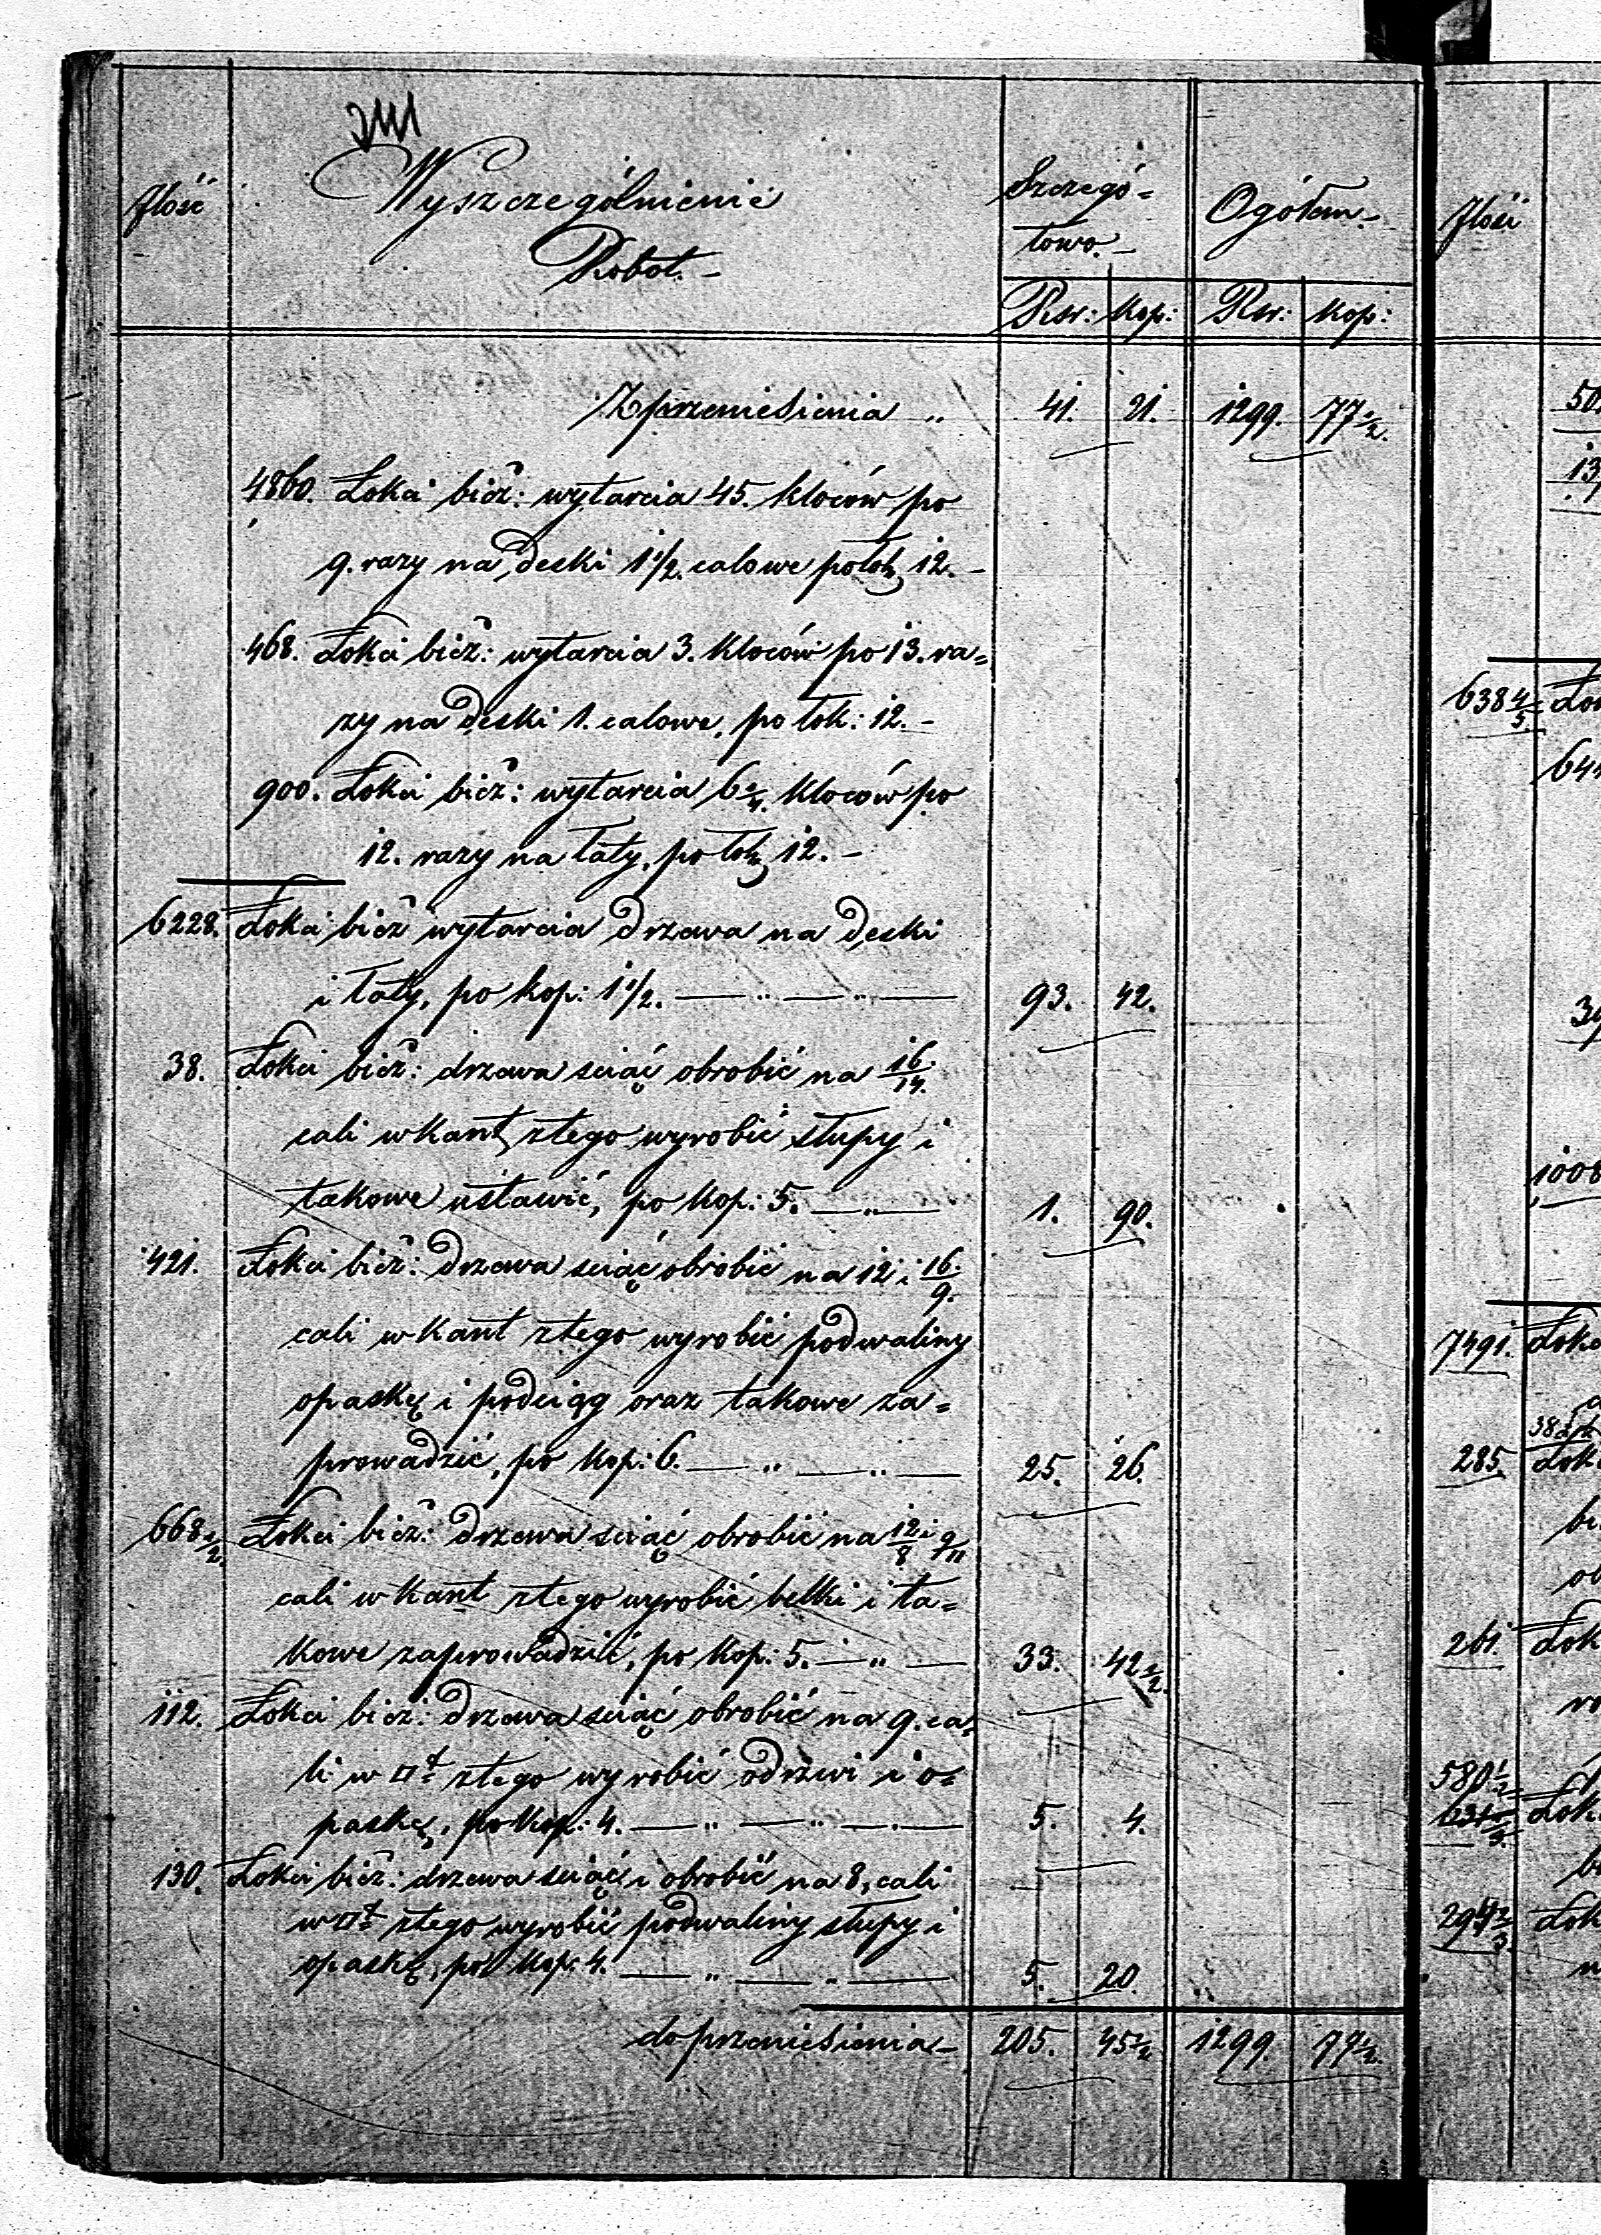 Ilość
Wyszczególnienie
Robot.-
Szczegó=
łowo.-
Ogółem.-
Rsr: Kop: Rsr: Kop:
Z przeniesienia „ 41. 21. 1299. 77 1/2.
4860. Łokci bież: wytarcia 45. kloców po
9. razy na deski 1 1/2. calowe po łok 12.-
468. Łokci bież: wytarcia 3. kloców po 13. ra=
zy na deski 1. calowe, po łok: 12.-
900. Łokci bież: wytarcia 6 1/4. kloców po
12. razy na łaty, po łok 12.-
6228. Łokci bież wytarcia drzewa na deski
i łaty, po kop: 1 1/2. — „ — „ — 93. 42.
38. Łokci bież: drzewa ściąć obrobić na 16/14.
cali w kant, z tego wyrobić słupy i
takowe ustawić, po kop: 5. — „ — 1. 90.
421. Łokci bież: drzewa ściąć obrobić na 12 i 16./9.
cali w kant z tego wyrobić podwaliny
opaskę i podciąg oraz takowe za=
prowadzić, po kop: 6. — „ — „ — 25. 26.
668 1/2. Łokci bież: drzewa ściąć obrobić na 12/8 i 9/11
cali w kant z tego wyrobić belki i ta=
kowe zaprowadzić, po kop: 5. — „ — 33. 42 1/2.
112. Łokci bież: drzewa ściąć obrobić na 9. ca=
li w □t z tego wyrobić odrzwi i o=
paskę, po kop: 4. — „ — „ — 5. 4.
130. Łokci bież: drzewa ściąć i obrobić na 8, cali
w □t z tego wyrobić podwaliny słupy i
opaskę, po kop: 4. — „ — „ — 5. 20.
do przeniesienia - 205. 45 1/2 1299. 77 1/2.
Ilość
638 4/5.
7491.
285.
261.
580 1/2